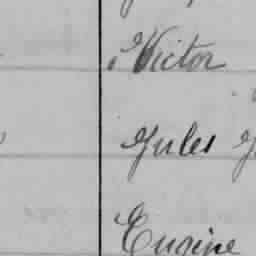 Victor
Jules
Eugène